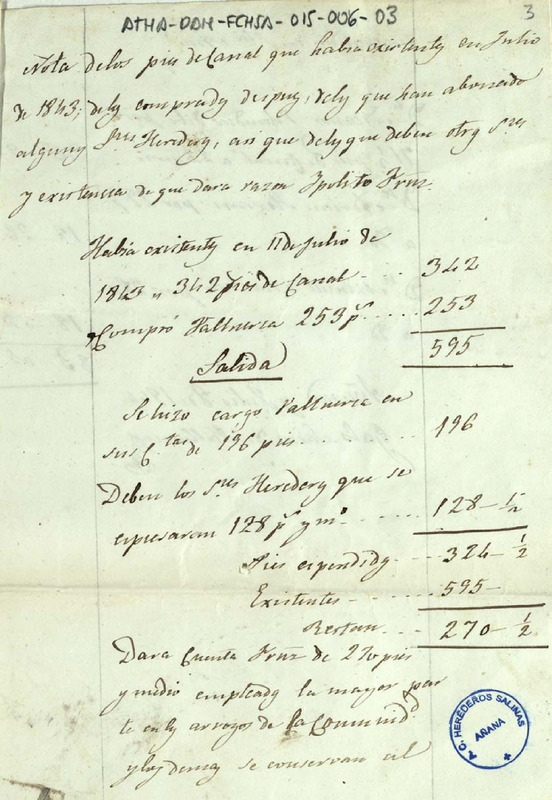 ATHA-DAH-FCHSA-015-006-03
3
Nota de los pies de Canal que habia existentes en Julio
de 1843; de los comprados despues, de los que han abonado
algunos Sres Herederos, asi que de los que deben otros Sres
y existencia de que dara razon Ipolito Fruz.
Habia existentes en 11 de Julio de
1843 , 342 pies de Canal 342
Compró Valluerca 253 ps 253
595
Salida
Se hizo cargo Valluerca en
sus Ctas de 196 pies 196
Deben los Sres Herederos que se
espresaran 128 ps y mo 128-1/2
Pies espendidos 324-1/2
Existentes 595-
Restan 270-1/2
Dara Cuenta Fruz de 270 pies
y medio empleados la mayor par
te en los arroyos de la Comunidd
y los demas se conservan al
A. C. HEREDEROS SALINAS
AÑANA